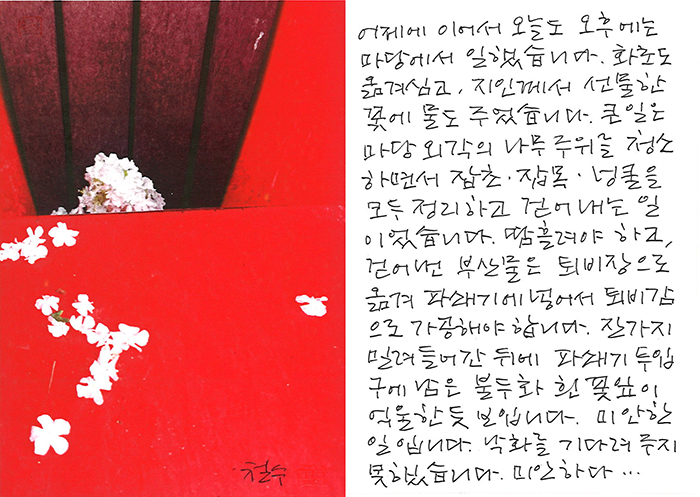 어제에 이어서 오늘도 오후에는
마당에서 일했습니다. 화초도
옮겨심고, 지인께서 선물한
꽃에 물도 주었습니다. 큰일은
마당 외곽의 나무 주위를 청소
하면서 잡초·잡목·넝쿨을
모두 정리하고 걷어내는 일
이었습니다. 땀흘려야 하고,
걷어낸 부산물은 퇴비장으로
옮겨 파쇄기에 넣어서 퇴비감
으로 가공해야 합니다. 잔가지
밀려들어간 뒤에 파쇄기 투입
구에 남은 불두화 흰 꽃잎이
억울한듯 보입니다. 미안한
일입니다. 낙화를 기다려 주지
못했습니다. 미안하다 …
철수